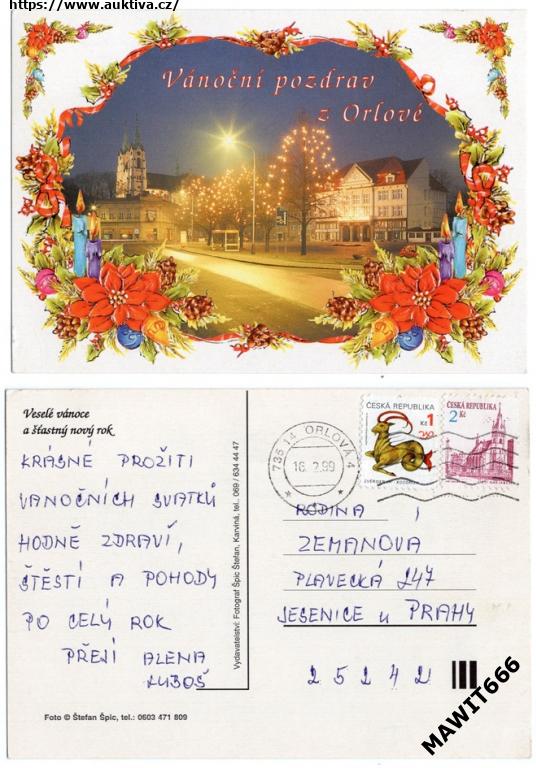 https://www.auktiva.cz/
Vánoční pozdrav
z Orlové
Veselé vánoce
a šťastný nový rok
KRÁSNÉ PROŽITI
VANOČNÍCH SVATKŮ
HODNĚ ZDRAVÍ,
ŠTĚSTÍ A POHODY
PO CELÝ ROK
PŘEJÍ ALENA
LUBOŠ
Foto © Štefan Špic, tel.: 0603 471 809
Vydavatelství: Fotograf Špic Štefan, Karviná, tel.: 069 / 634 44 47
735 14 ORLOVÁ 4
16. 2.99
ČESKÁ REPUBLIKA
Kč 1
ZVĚROKRUH
ČESKÁ REPUBLIKA
2 Kč
RODINA
ZEMANOVA
PLAVECKÁ 247
JESENICE u PRAHY
25242
MAWIT666